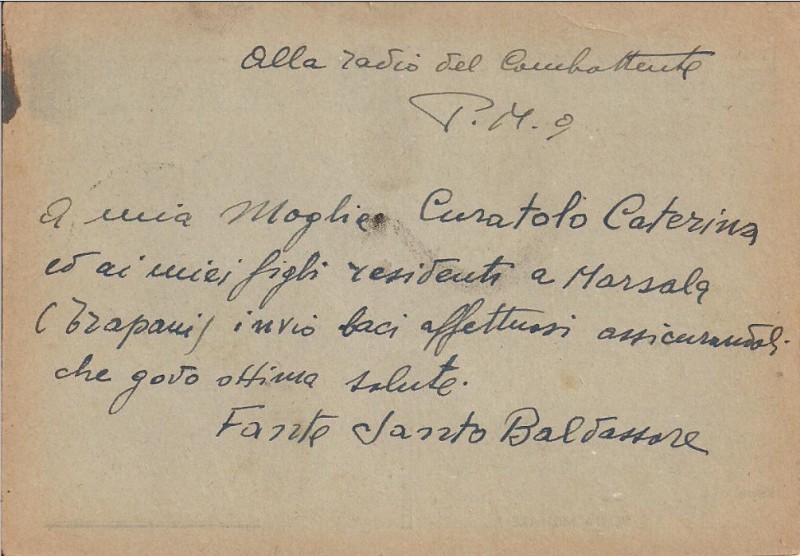 Alla radio del Combattente
P. M. 9
A mia Moglie Curatolo Caterina
ed ai miei figli residenti a Marsala
(Trapani) invio baci affettuosi assicurandoli
che godo ottima salute.
Fante Santo Baldassare